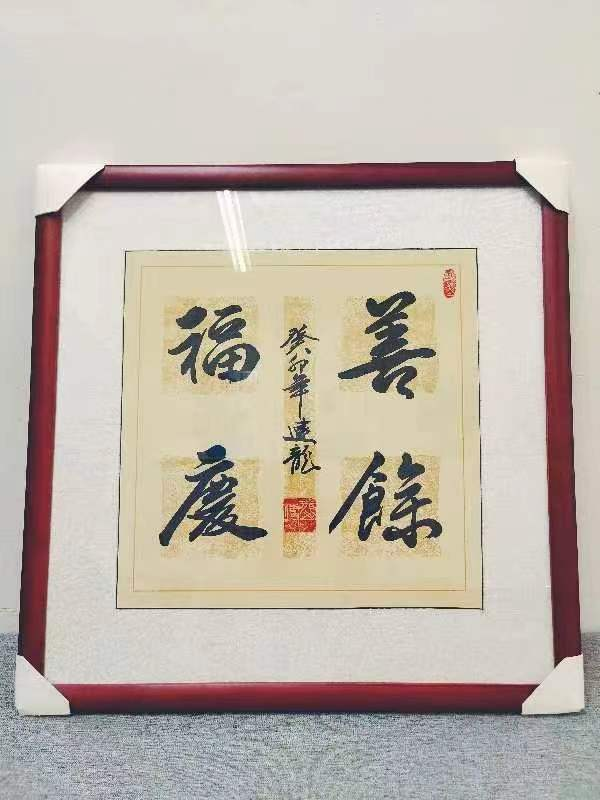 善餘
福慶
癸卯年連龍